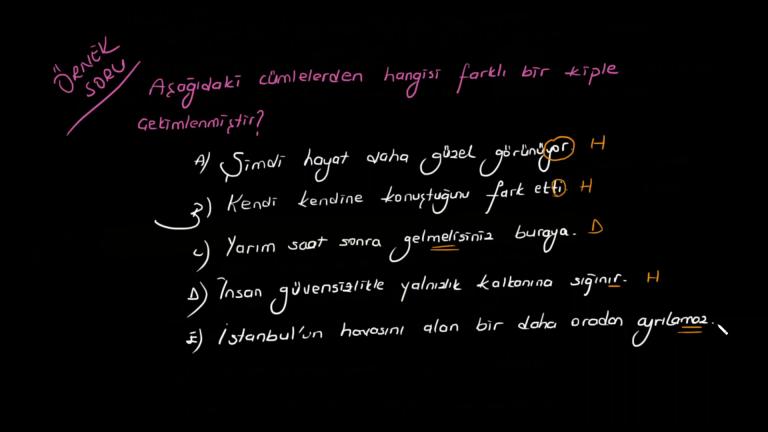 ÖRNEK
SORU
Aşağıdaki cümlelerden hangisi farklı bir kiple
çekimlenmiştir?
A) Şimdi hayat daha güzel görünüyor. H
B) Kendi kendine konuştuğunu fark etti. H
C) Yarım saat sonra gelmelisiniz buraya. D
D) İnsan güvensizlikle yalnızlık kalkanına sığınır. H
E) İstanbul'un havasını alan bir daha oradan ayrılamaz.